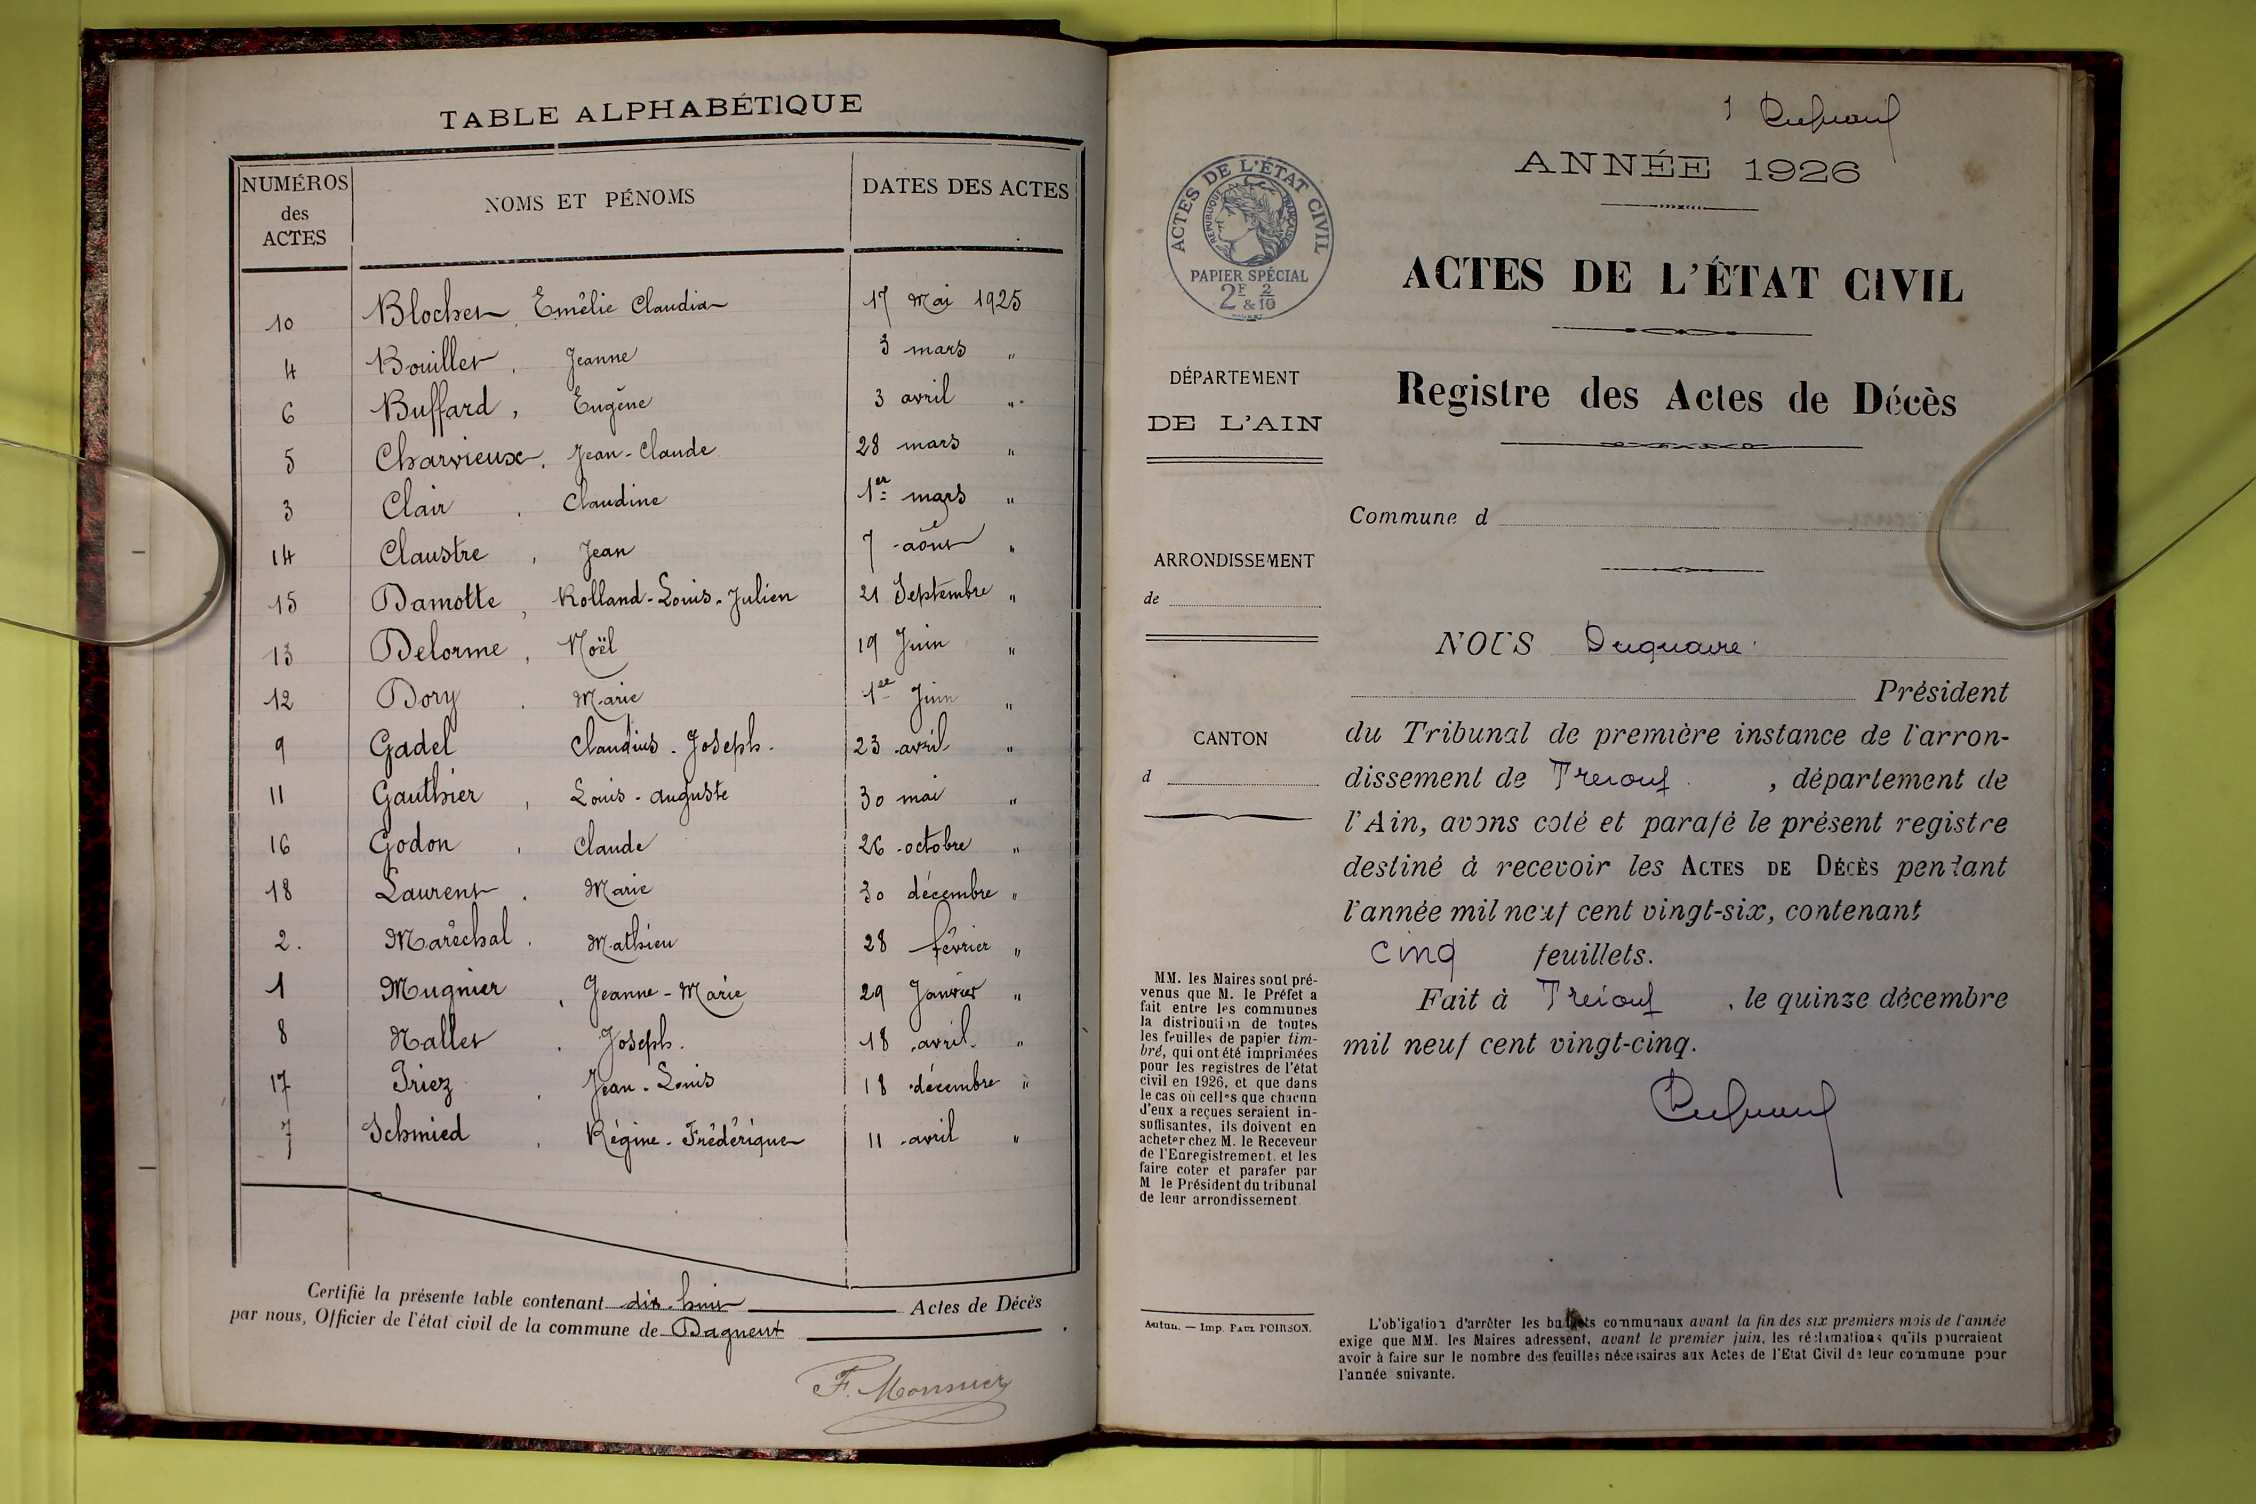 TABLE ALPHABÉTIQUE
NUMÉROS des ACTES NOMS ET PÉNOMS DATES DES ACTES
10 Blochet Émélie Claudia 17 Mai 1925
4 Bouillet, Jeanne 3 mars "
6 Buffard, Eugène 3 avril "
5 Charvieux, Jean-Claude 28 mars "
3 Clair, Claudine 1er mars "
14 Claustre, Jean 7 août "
15 Damotte, Rolland-Louis-Julien 21 Septembre "
13 Delorme, Noël 19 Juin "
12 Dory, Marie 1er Juin "
9 Gadel Claudius-Joseph. 23 avril "
11 Gauthier, Louis-auguste 30 mai "
16 Godon, Claude 26 octobre "
18 Laurent, Marie 30 décembre "
2. Maréchal, Mathieu 28 février "
1 Mugnier, Jeanne-Marie 29 Janvier "
8 Nallet, Joseph. 18 avril "
17 Priez, Jean-Louis 18 décembre "
7 Schmied, Régine-Frédérique 11 avril "
Certifié la présente table contenant dix-huit Actes de Décès
par nous, Officier de l'état civil de la commune de Dagneux
F. Monnier
1
ANNÉE 1926
ACTES DE L'ÉTAT CIVIL
RÉPUBLIQUE FRANÇAISE
PAPIER SPÉCIAL
2F & 2/10
ACTES DE L'ÉTAT CIVIL
Registre des Actes de Décès
DÉPARTEMENT
DE L'AIN
Commune d
ARRONDISSEMENT
de
NOUS Duquaire
Président
CANTON
d
du Tribunal de première instance de l'arron-
dissement de Trévoux, département de
l'Ain, avons coté et parafé le présent registre
destiné à recevoir les ACTES DE DÉCÈS pendant
l'année mil neuf cent vingt-six, contenant
cinq feuillets.
Fait à Trévoux, le quinze décembre
mil neuf cent vingt-cinq.
MM. les Maires sont pré-
venus que M. le Préfet a
fait entre les communes
la distribution de toutes
les feuilles de papier tim-
bré, qui ont été imprimées
pour les registres de l'état
civil en 1926, et que dans
le cas où celles que chacun
d'eux a reçues seraient in-
suffisantes, ils doivent en
acheter chez M. le Receveur
de l'Enregistrement, et les
faire coter et parafer par
M le Président du tribunal
de leur arrondissement
Autun. — Imp. PAUL POIRSON.
L'obligation d'arrêter les budgets communaux avant la fin des six premiers mois de l'année
exige que MM. les Maires adressent, avant le premier juin, les réclamations qu'ils pourraient
avoir à faire sur le nombre des feuilles nécessaires aux Actes de l'Etat Civil de leur commune pour
l'année suivante.